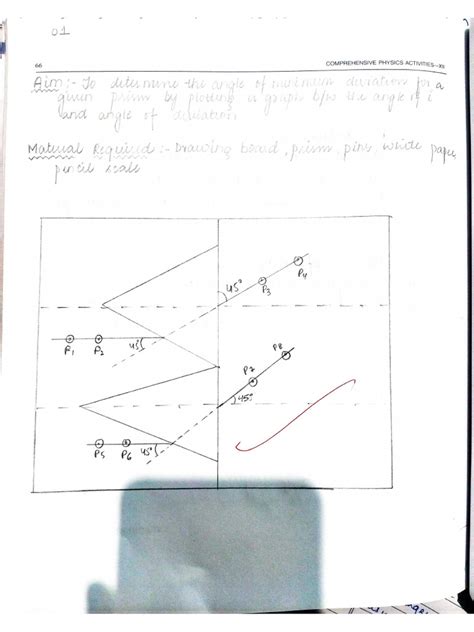 01
66 COMPREHENSIVE PHYSICS ACTIVITIES—XII
Aim :- To determine the angle of minimum deviation for a
given prism by plotting a graph b/w the angle of i
and angle of deviation
Material Required :- Drawing board, prism, pins, white paper,
pencil scale
P4
45° P3
P1 P2 45°
P8
P7
45°
P5 P6 45°